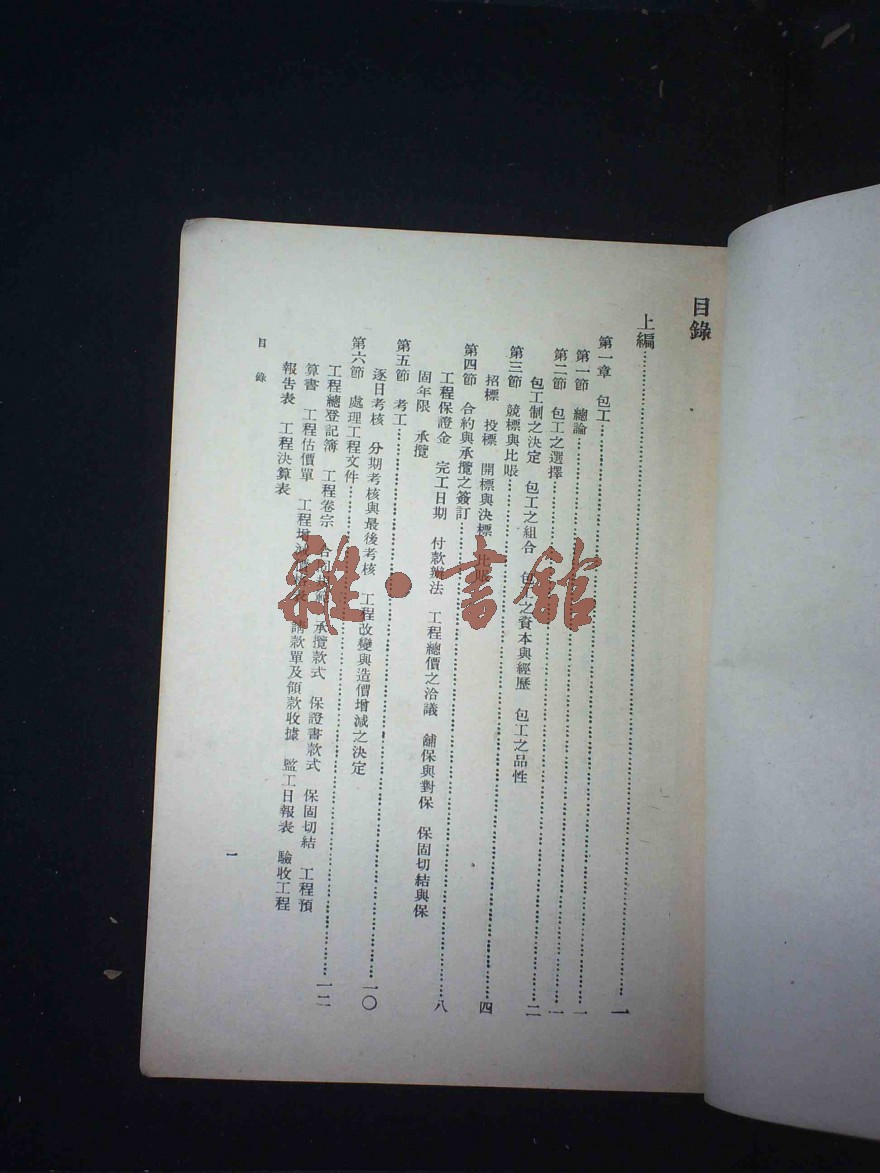 目錄
上編……一
第一章 包工……一
第一節 總論……一
第二節 包工之選擇……二
包工制之決定 包工之組合 包工之資本與經歷 包工之品性
第三節 競標與比賬……四
招標 投標 開標與決標 比賬
第四節 合約與承攬之簽訂……八
工程保證金 完工日期 付款辦法 工程總價之洽議 舖保與對保 保固切結與保
固年限 承攬
第五節 考工……一〇
逐日考核 分期考核與最後考核 工程改變與造價增減之決定
第六節 處理工程文件……一二
工程總登記簿 工程卷宗 合同 承攬款式 保證書款式 保固切結 工程預
算書 工程估價單 工程增減 請款單及領款收據 監工日報表 驗收工程
報告表 工程決算表
目錄
一
雜·書館